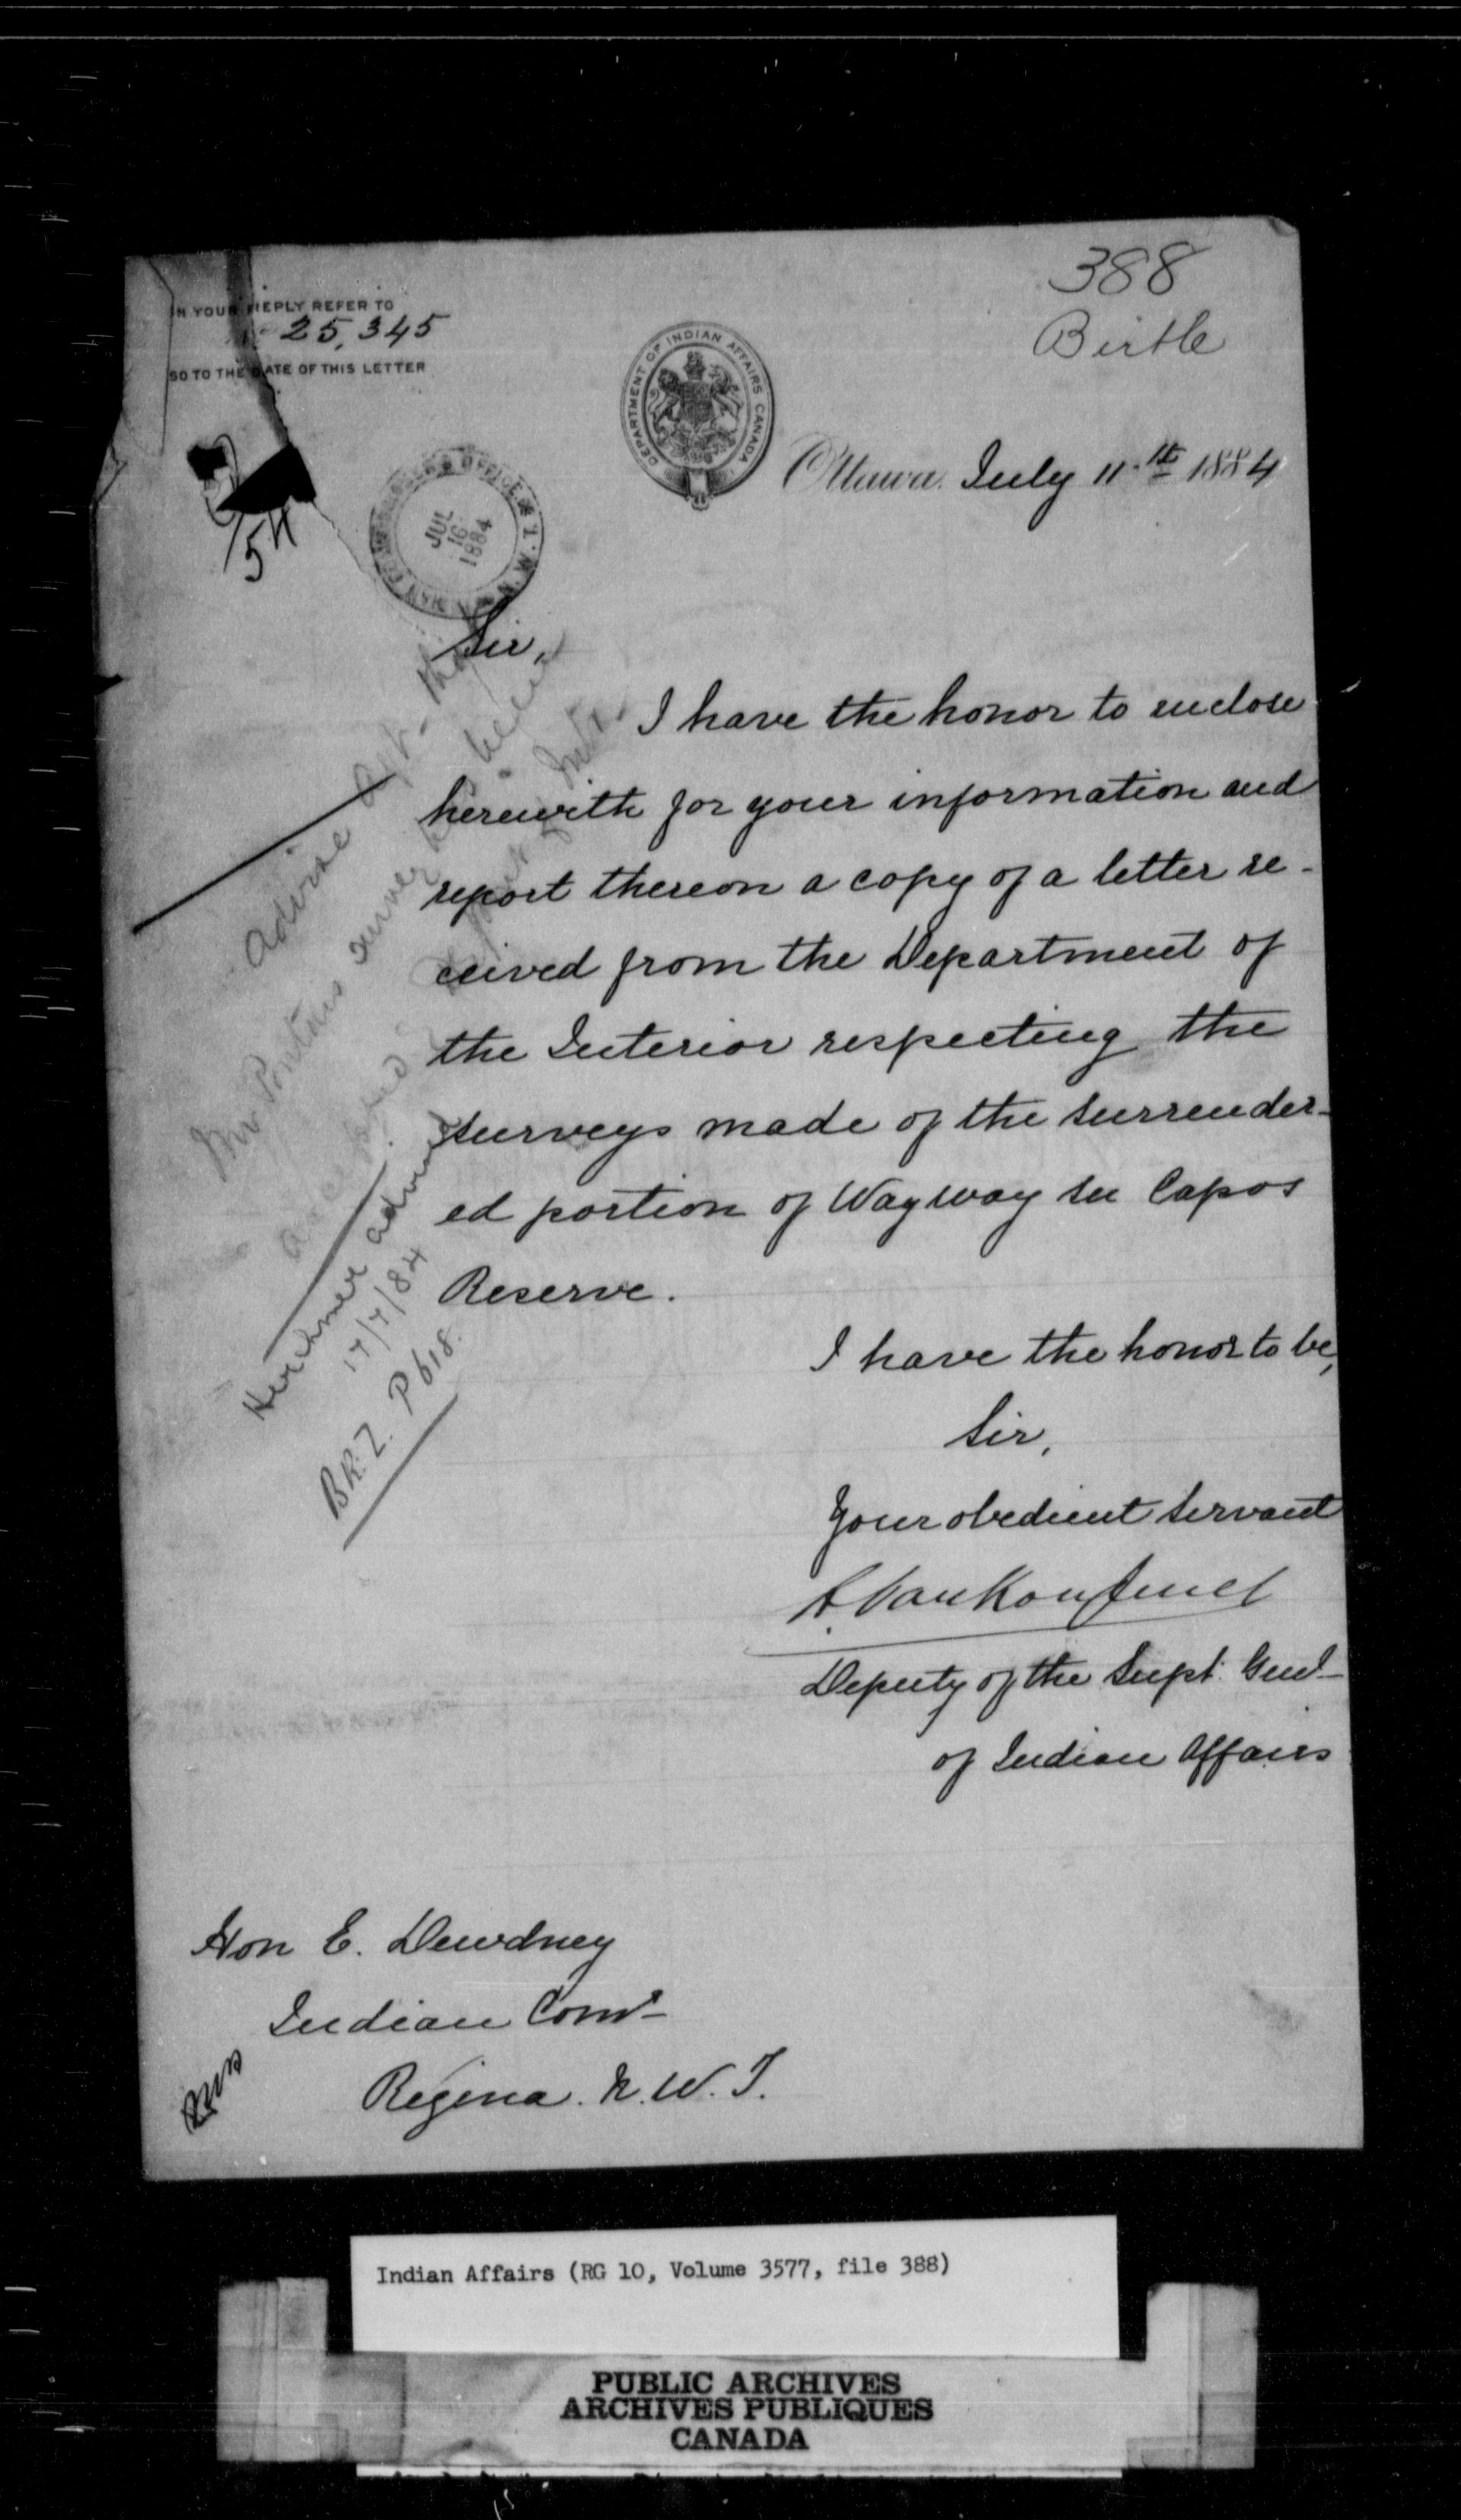 388
Birtle
IN YOUR REPLY REFER TO
25,345
SO TO THE DATE OF THIS LETTER
DEPARTMENT OF INDIAN AFFAIRS CANADA
Ottawa. July 11th 1884
JUL
16
1884
Sir,
I have the honor to enclose
herewith for your information and
report thereon a copy of a letter re-
ceived from the Department of
the Interior respecting the
surveys made of the surrender-
ed portion of Way way see Capos
Reserve.
I have the honor to be,
Sir,
Your obedient Servant
L. VanKoughnet
Deputy of the Supt. Genl
of Indian Affairs
Advise Agt. that
Mr Ponton's survey has been
accepted
Herchmer advised
17/7/84
BK. Z. P 618.
Hon E. Dewdney
Indian Comr
Regina. N. W. T.
Indian Affairs (RG 10, Volume 3577, file 388)
PUBLIC ARCHIVES
ARCHIVES PUBLIQUES
CANADA